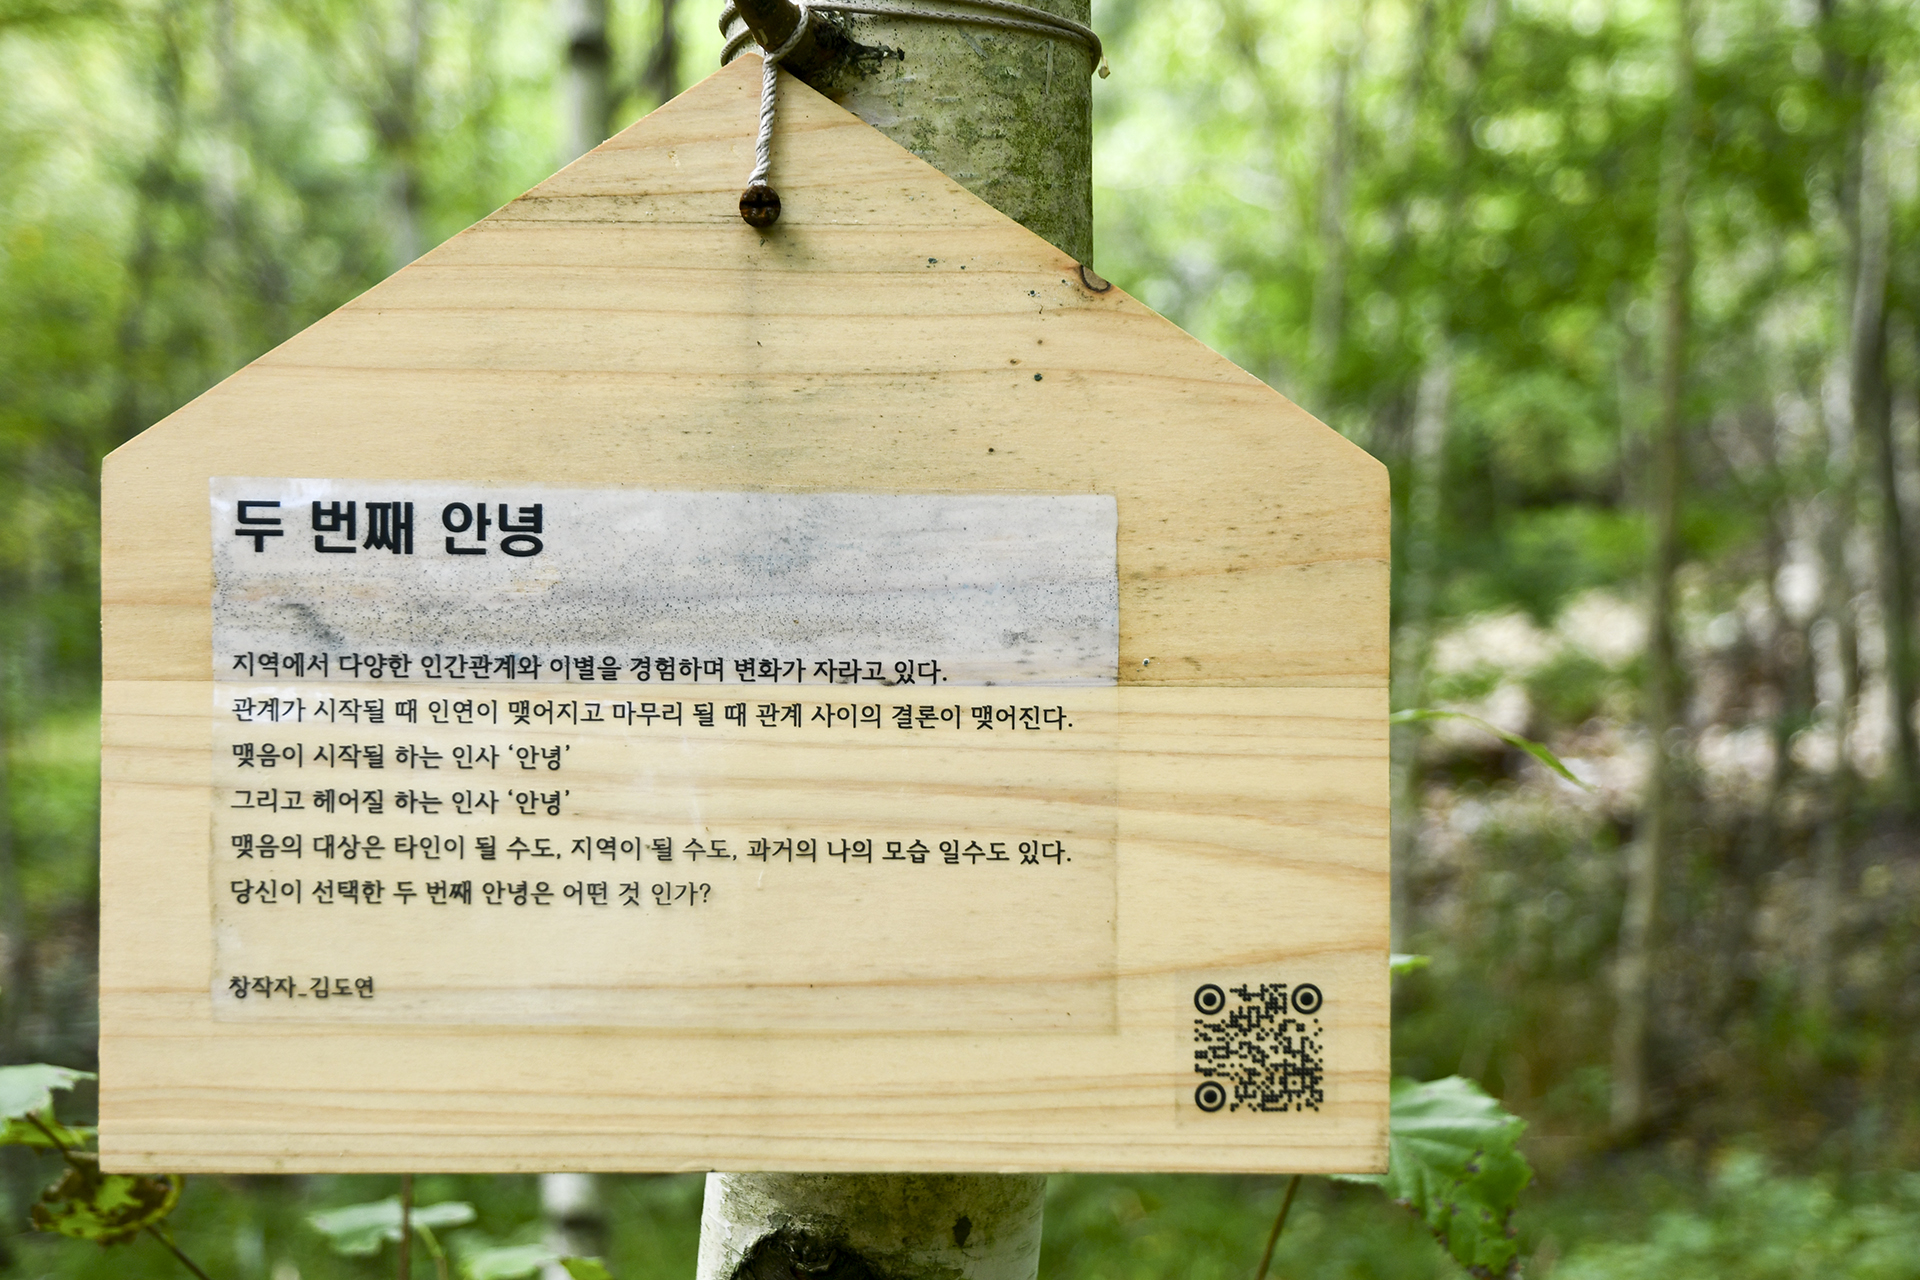 두 번째 안녕
지역에서 다양한 인간관계와 이별을 경험하며 변화가 자라고 있다.
관계가 시작될 때 인연이 맺어지고 마무리 될 때 관계 사이의 결론이 맺어진다.
맺음이 시작될 하는 인사 ‘안녕’
그리고 헤어질 하는 인사 ‘안녕’
맺음의 대상은 타인이 될 수도, 지역이 될 수도, 과거의 나의 모습 일수도 있다.
당신이 선택한 두 번째 안녕은 어떤 것 인가?
창작자_김도연